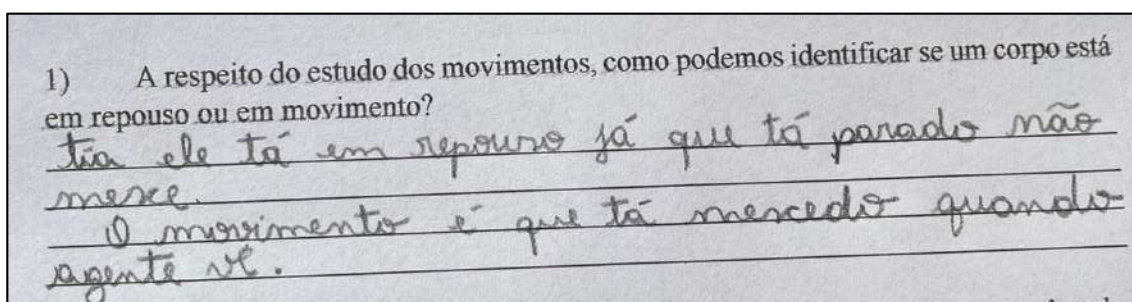 1) A respeito do estudo dos movimentos, como podemos identificar se um corpo está
em repouso ou em movimento?
tia ele tá em repouso já que tá parado não
mexe.
O movimento é que tá mexcedo quando
agente vê.